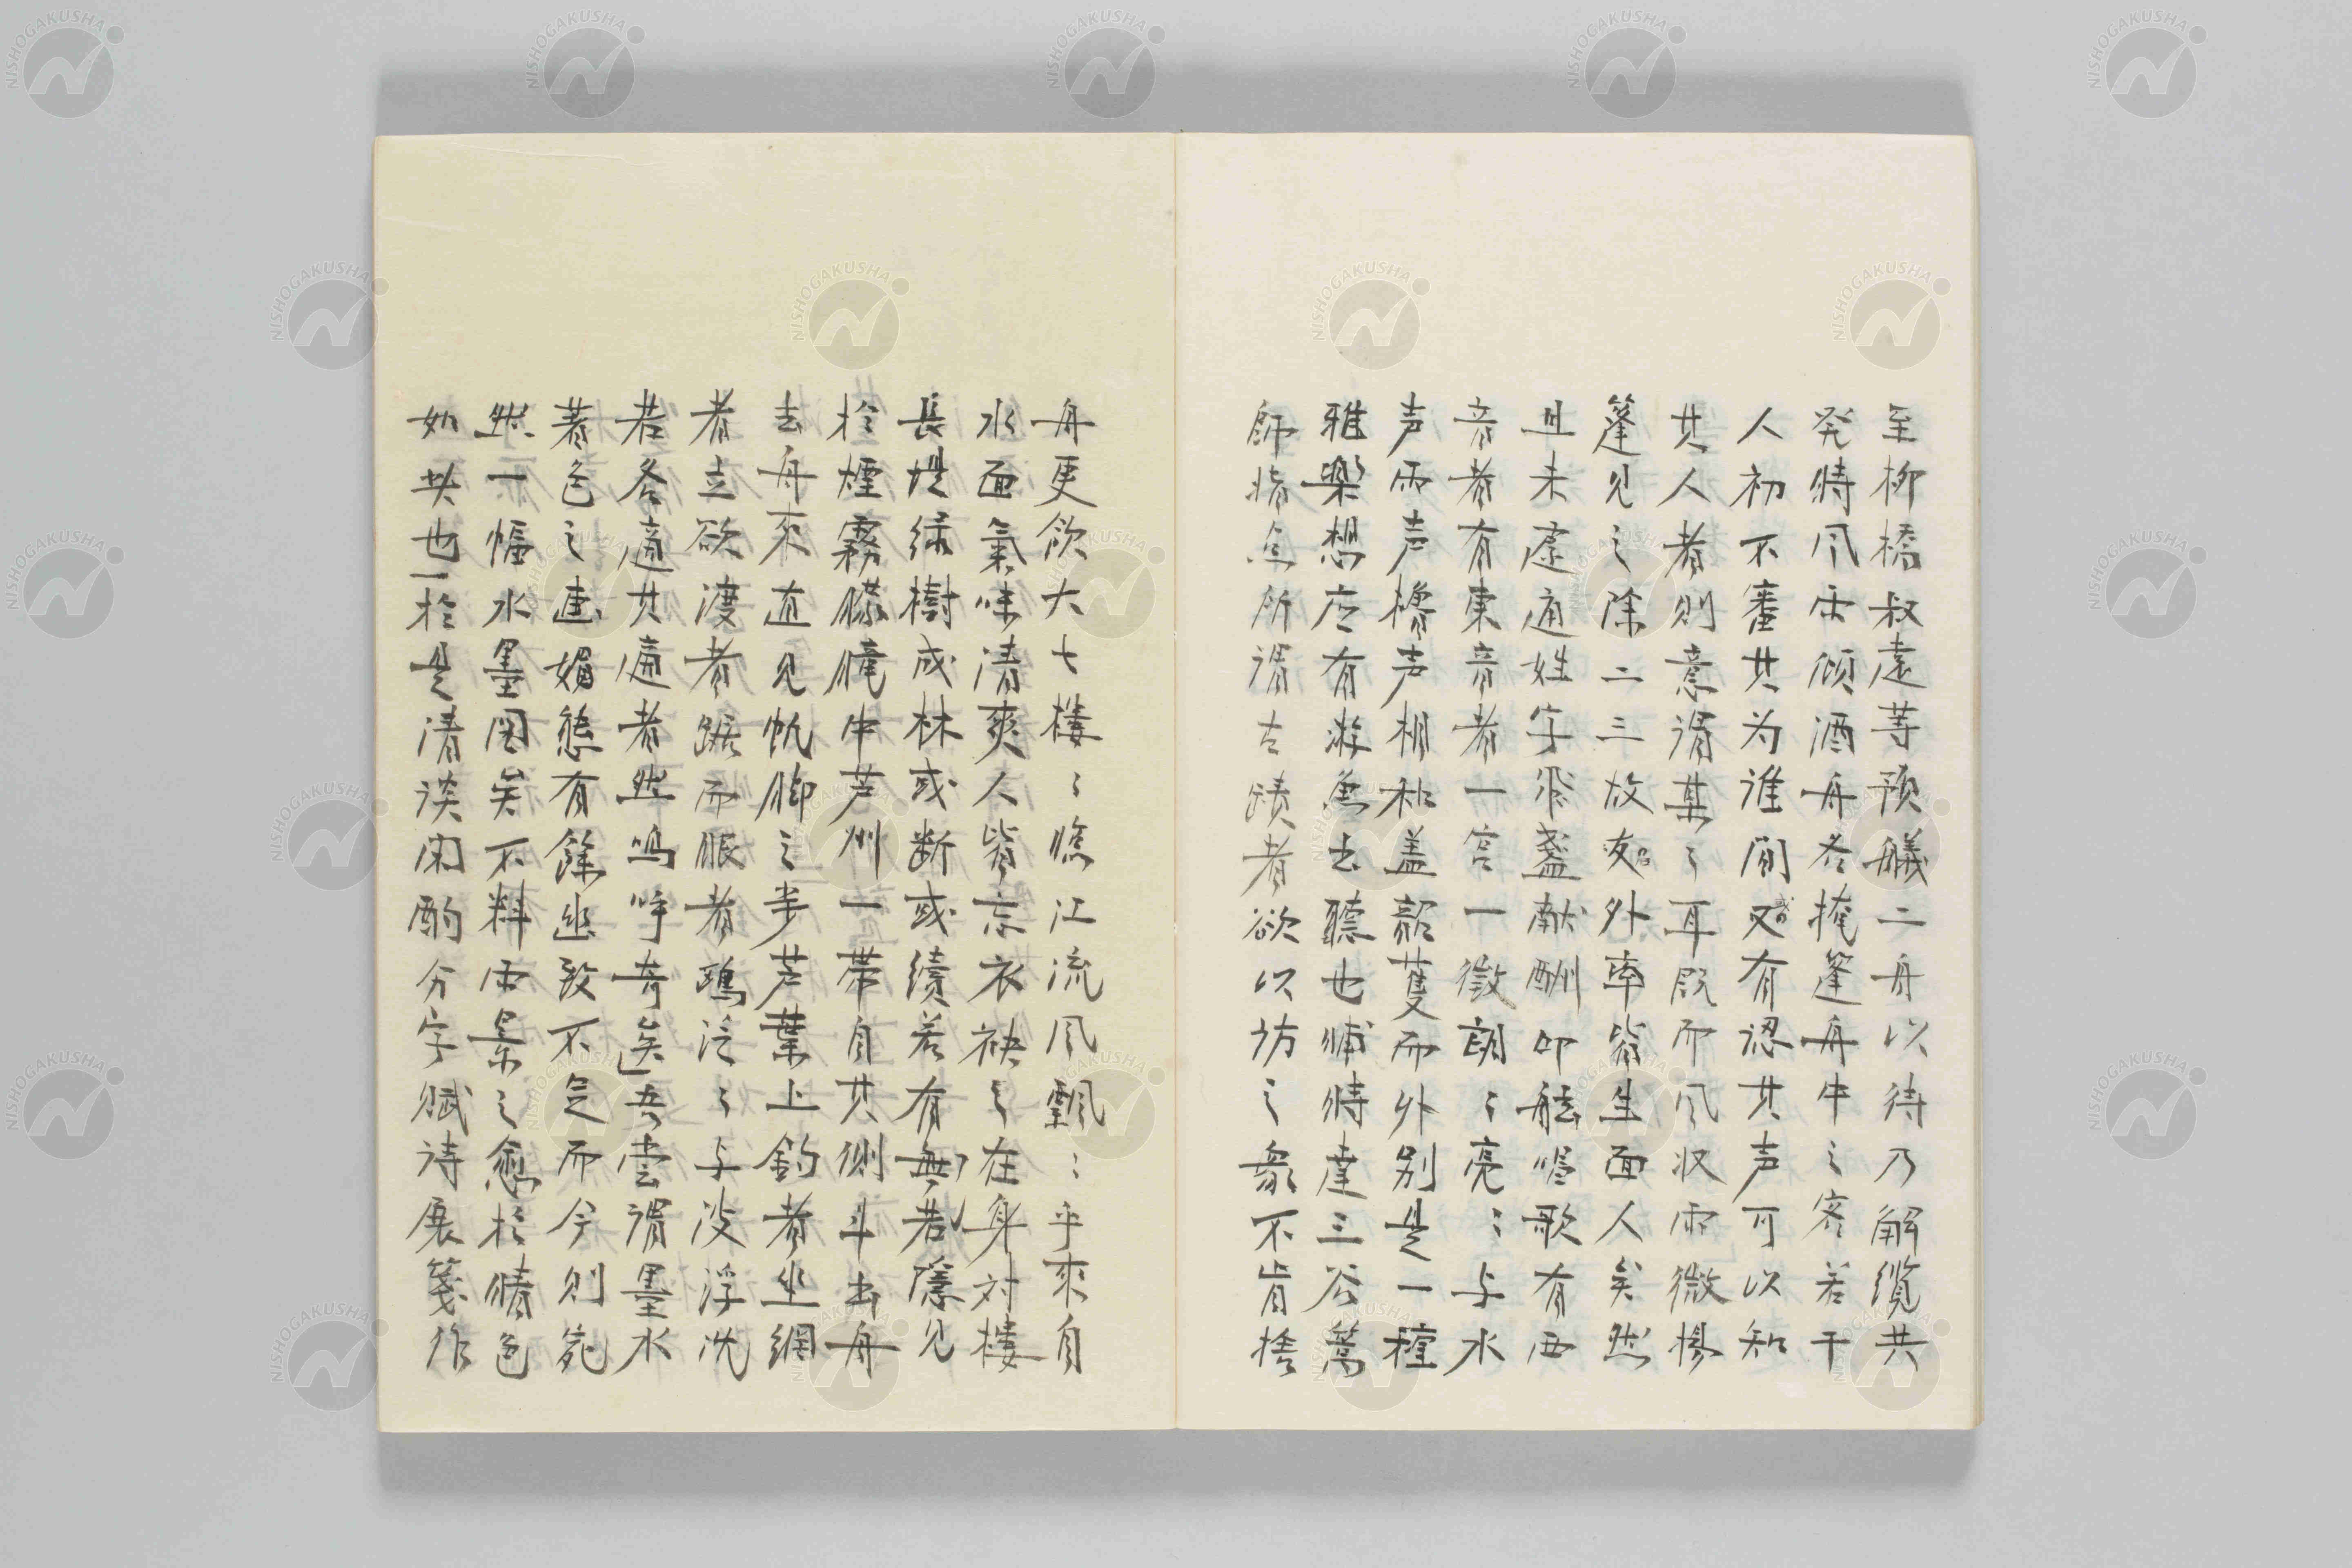 至柳橋叔遠等預艤二舟以待乃解纜共
発時风雨傾酒舟各掩篷舟中之客若干
人初不審其为誰間或又有認其声可以知
其人者則意謂某〻耳既而风収雨微揚
篷见之除二三故友外率皆生面人矣然
且未遑通姓字飛盞献酬叩舷唱歌有西
音者有東音者一宫一徴朗〻亮〻与水
声雨声櫓声相和盖韶頀而外别是一種
雅樂想应有游魚去聴也晡時達三谷篙
師指点所謂古蹟者欲以访之衆不肯捨
舟更飲大七楼〻臨江流风飄〻乎來自
水面氣味清爽人皆忘衣袂之在身対楼
長堤緑樹成林或断或續若有無若隱见
於煙霧朦朧中芦州一帯自其側斗出舟
去舟來道见帆脚之半芦葉上釣者坐網
者立欲渡者踞而賑者鷗泛〻与波浮沈
者各適其適者然嗚呼奇矣吾嘗謂墨水
著色之画媚態有餘幽致不足而今則宛
然一幅水墨図矣不料雨景之愈於晴色
如此也於是清談閑酌分字賦詩展箋作